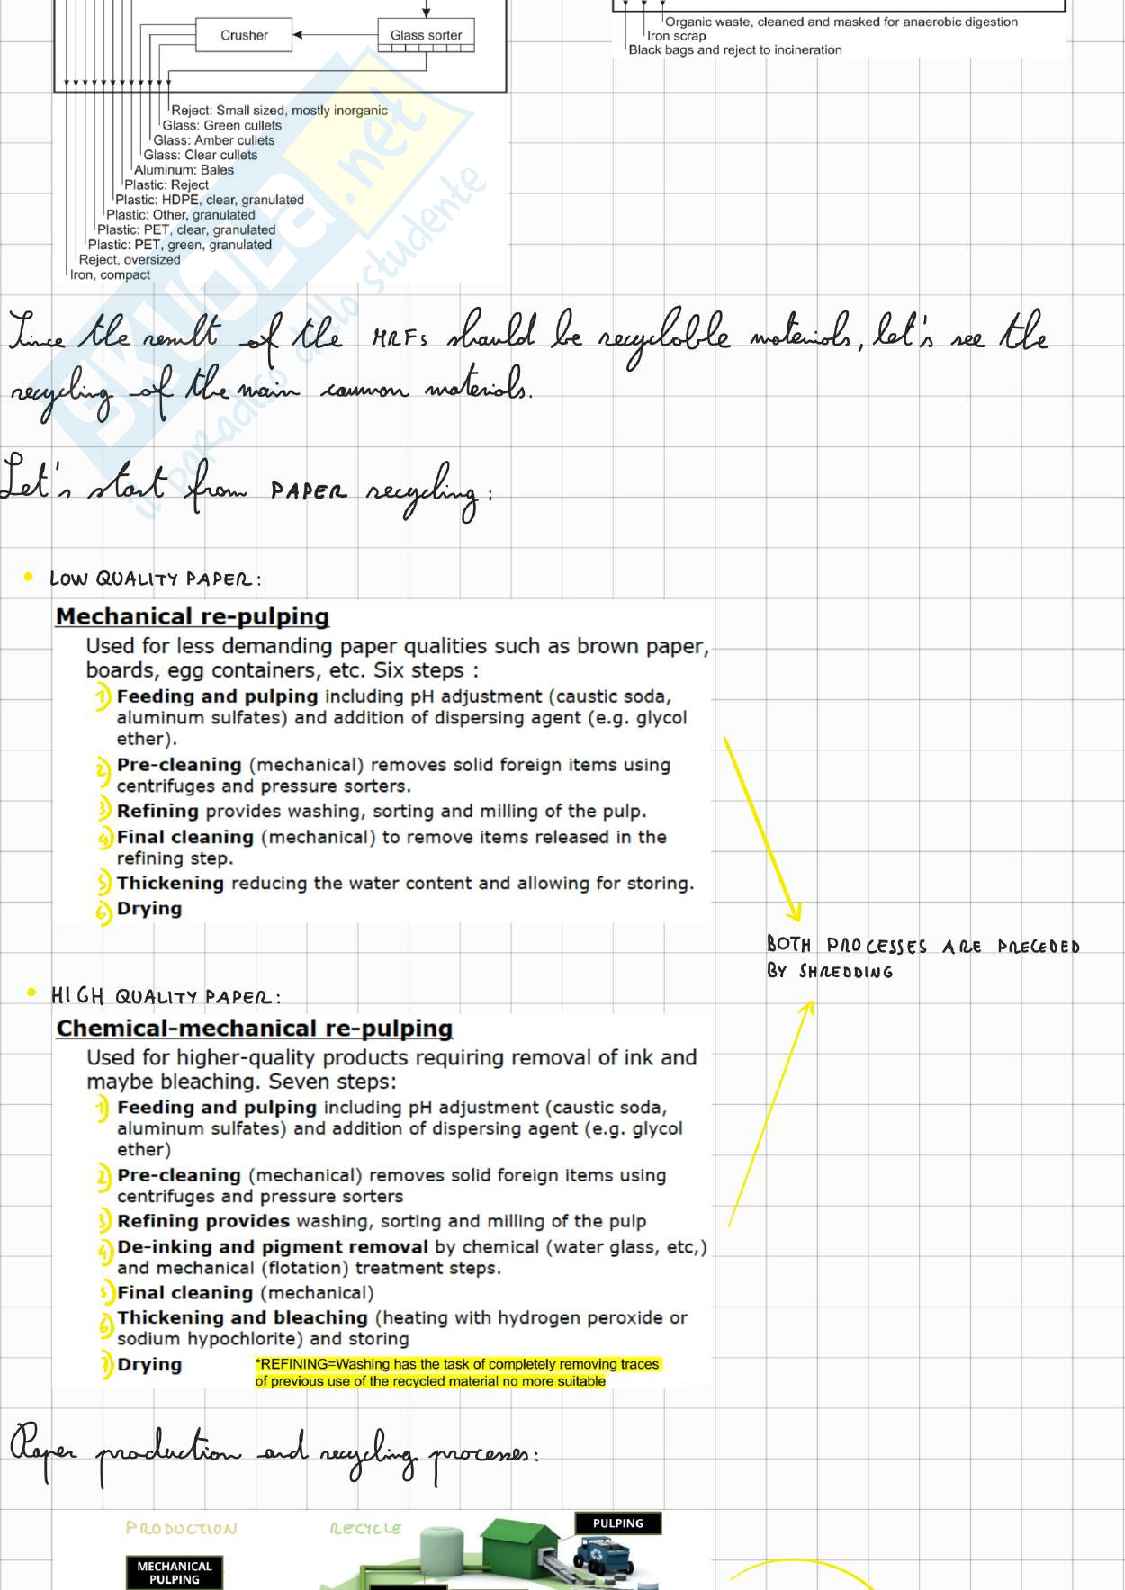 Crusher
Glass sorter
Organic waste, cleaned and masked for anaerobic digestion
Iron scrap
Black bags and reject to incineration
Reject: Small sized, mostly inorganic
Glass: Green cullets
Glass: Amber cullets
Glass: Clear cullets
Aluminum: Bales
Plastic: Reject
Plastic: HDPE, clear, granulated
Plastic: Other, granulated
Plastic: PET, clear, granulated
Plastic: PET, green, granulated
Reject, oversized
Iron, compact
SKUOLA.net
il paradiso dello studente
Since the result of the MRFs should be recyclable materials, let's see the
recycling of the main common materials.
Let's start from PAPER recycling:
• LOW QUALITY PAPER:
Mechanical re-pulping
Used for less demanding paper qualities such as brown paper,
boards, egg containers, etc. Six steps :
1) Feeding and pulping including pH adjustment (caustic soda,
aluminum sulfates) and addition of dispersing agent (e.g. glycol
ether).
2) Pre-cleaning (mechanical) removes solid foreign items using
centrifuges and pressure sorters.
3) Refining provides washing, sorting and milling of the pulp.
4) Final cleaning (mechanical) to remove items released in the
refining step.
5) Thickening reducing the water content and allowing for storing.
6) Drying
BOTH PROCESSES ARE PRECEDED
BY SHREDDING
• HIGH QUALITY PAPER:
Chemical-mechanical re-pulping
Used for higher-quality products requiring removal of ink and
maybe bleaching. Seven steps:
1) Feeding and pulping including pH adjustment (caustic soda,
aluminum sulfates) and addition of dispersing agent (e.g. glycol
ether)
2) Pre-cleaning (mechanical) removes solid foreign items using
centrifuges and pressure sorters
3) Refining provides washing, sorting and milling of the pulp
4) De-inking and pigment removal by chemical (water glass, etc,)
and mechanical (flotation) treatment steps.
5) Final cleaning (mechanical)
6) Thickening and bleaching (heating with hydrogen peroxide or
sodium hypochlorite) and storing
7) Drying
*REFINING=Washing has the task of completely removing traces
of previous use of the recycled material no more suitable
Paper production and recycling processes:
PRODUCTION
RECYCLE
PULPING
MECHANICAL
PULPING